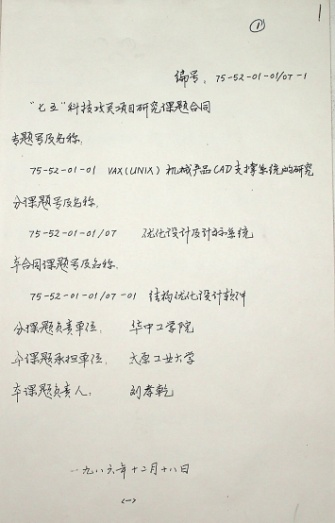 1
①
编号. 75-52-01-01/07-1
"七五"科技攻关项目研究课题合同
专题号及名称.
75-52-01-01 VAX(UNIX)机械产品CAD支撑系统的研究
分课题号及名称.
75-52-01-01/07 优化设计及计标系统
本合同课题号及名称.
75-52-01-01/07-01 结构优化设计软件
分课题负责单位. 华中工学院
本课题承担单位. 太原工业大学
本课题负责人. 刘孝乾
一九八六年十二月十八日
(一)